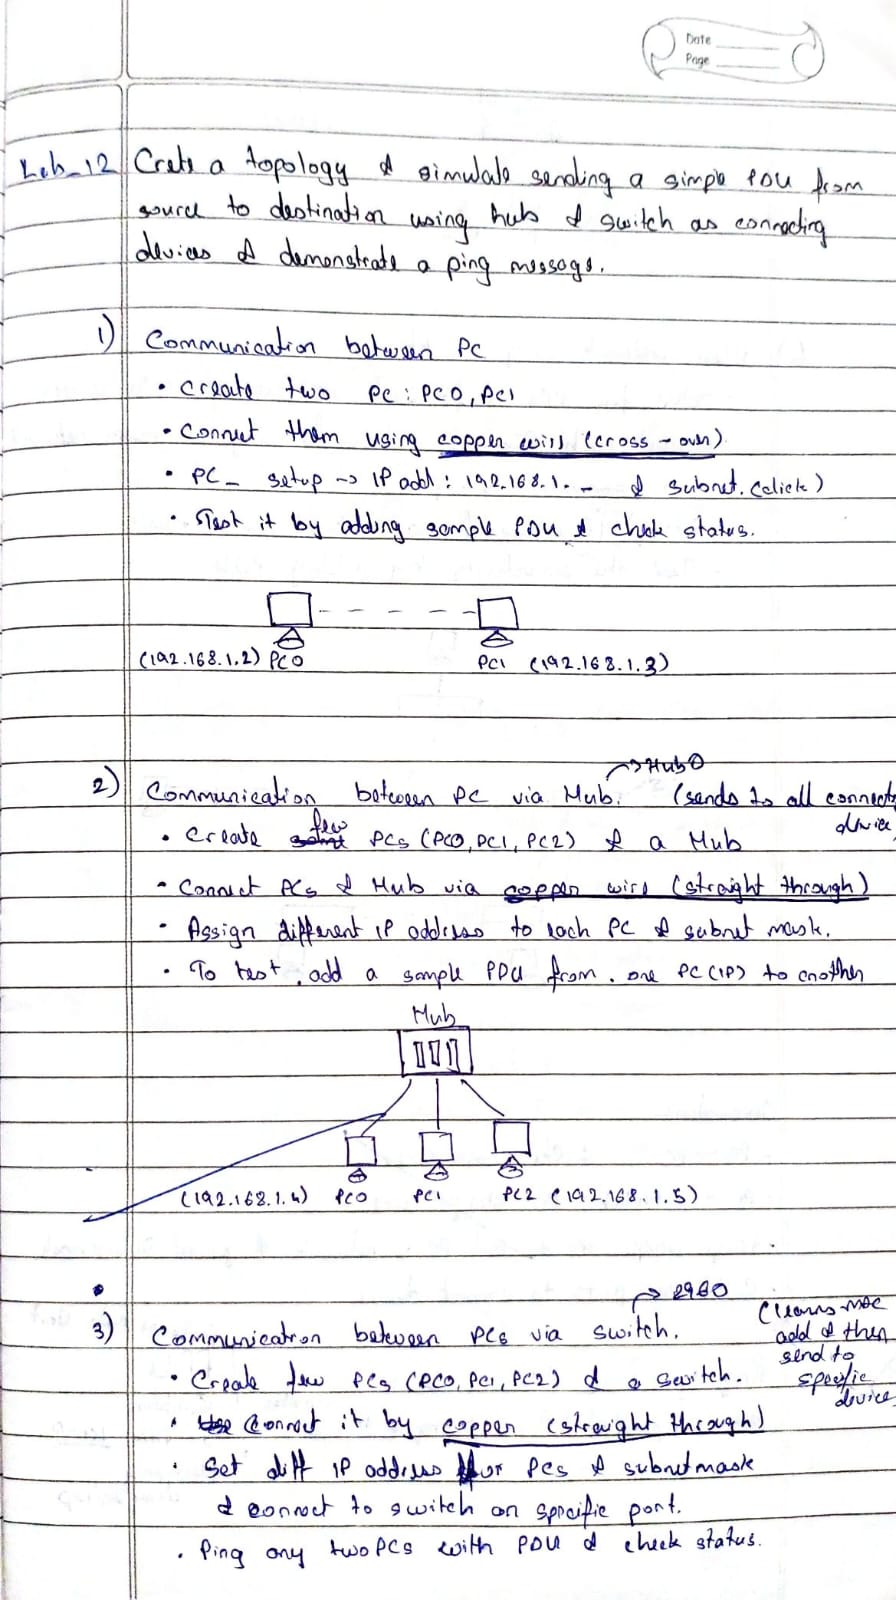 Date
Page
Lab_12 Crete a topology & simulate sending a simple PDU from
source to destination using hub & switch as connecting
devices & demonstrate a ping message.
1) Communication between PC
• Create two PC: PC0, PC1
• Connect them using copper wire (cross-over)
• PC_ setup -> IP add: 192.168.1. _ & subnet. (click)
• Test it by adding sample PDU & check status.
(192.168.1.2) PC0 PC1 (192.168.1.3)
-> Hub0
2) Communication between PC via Hub. (sends to all connects
device
• Create few PCs (PC0, PC1, PC2) & a Hub
• Connect PCs & Hub via copper wire (straight through)
• Assign different IP address to each PC & subnet mask.
• To test, add a sample PDU from . one PC (IP) to another
Hub
(192.168.1.4) PC0 PC1 PC2 (192.168.1.5)
-> 2960
3) Communication between PCs via switch.
(learns MAC
add & then
send to
specific
device
• Create few PCs (PC0, PC1, PC2) & a switch.
• Connect it by copper (straight through)
• Set diff IP address for PCs & subnetmask
& connect to switch on specific port.
• Ping any two PCs with PDU & check status.